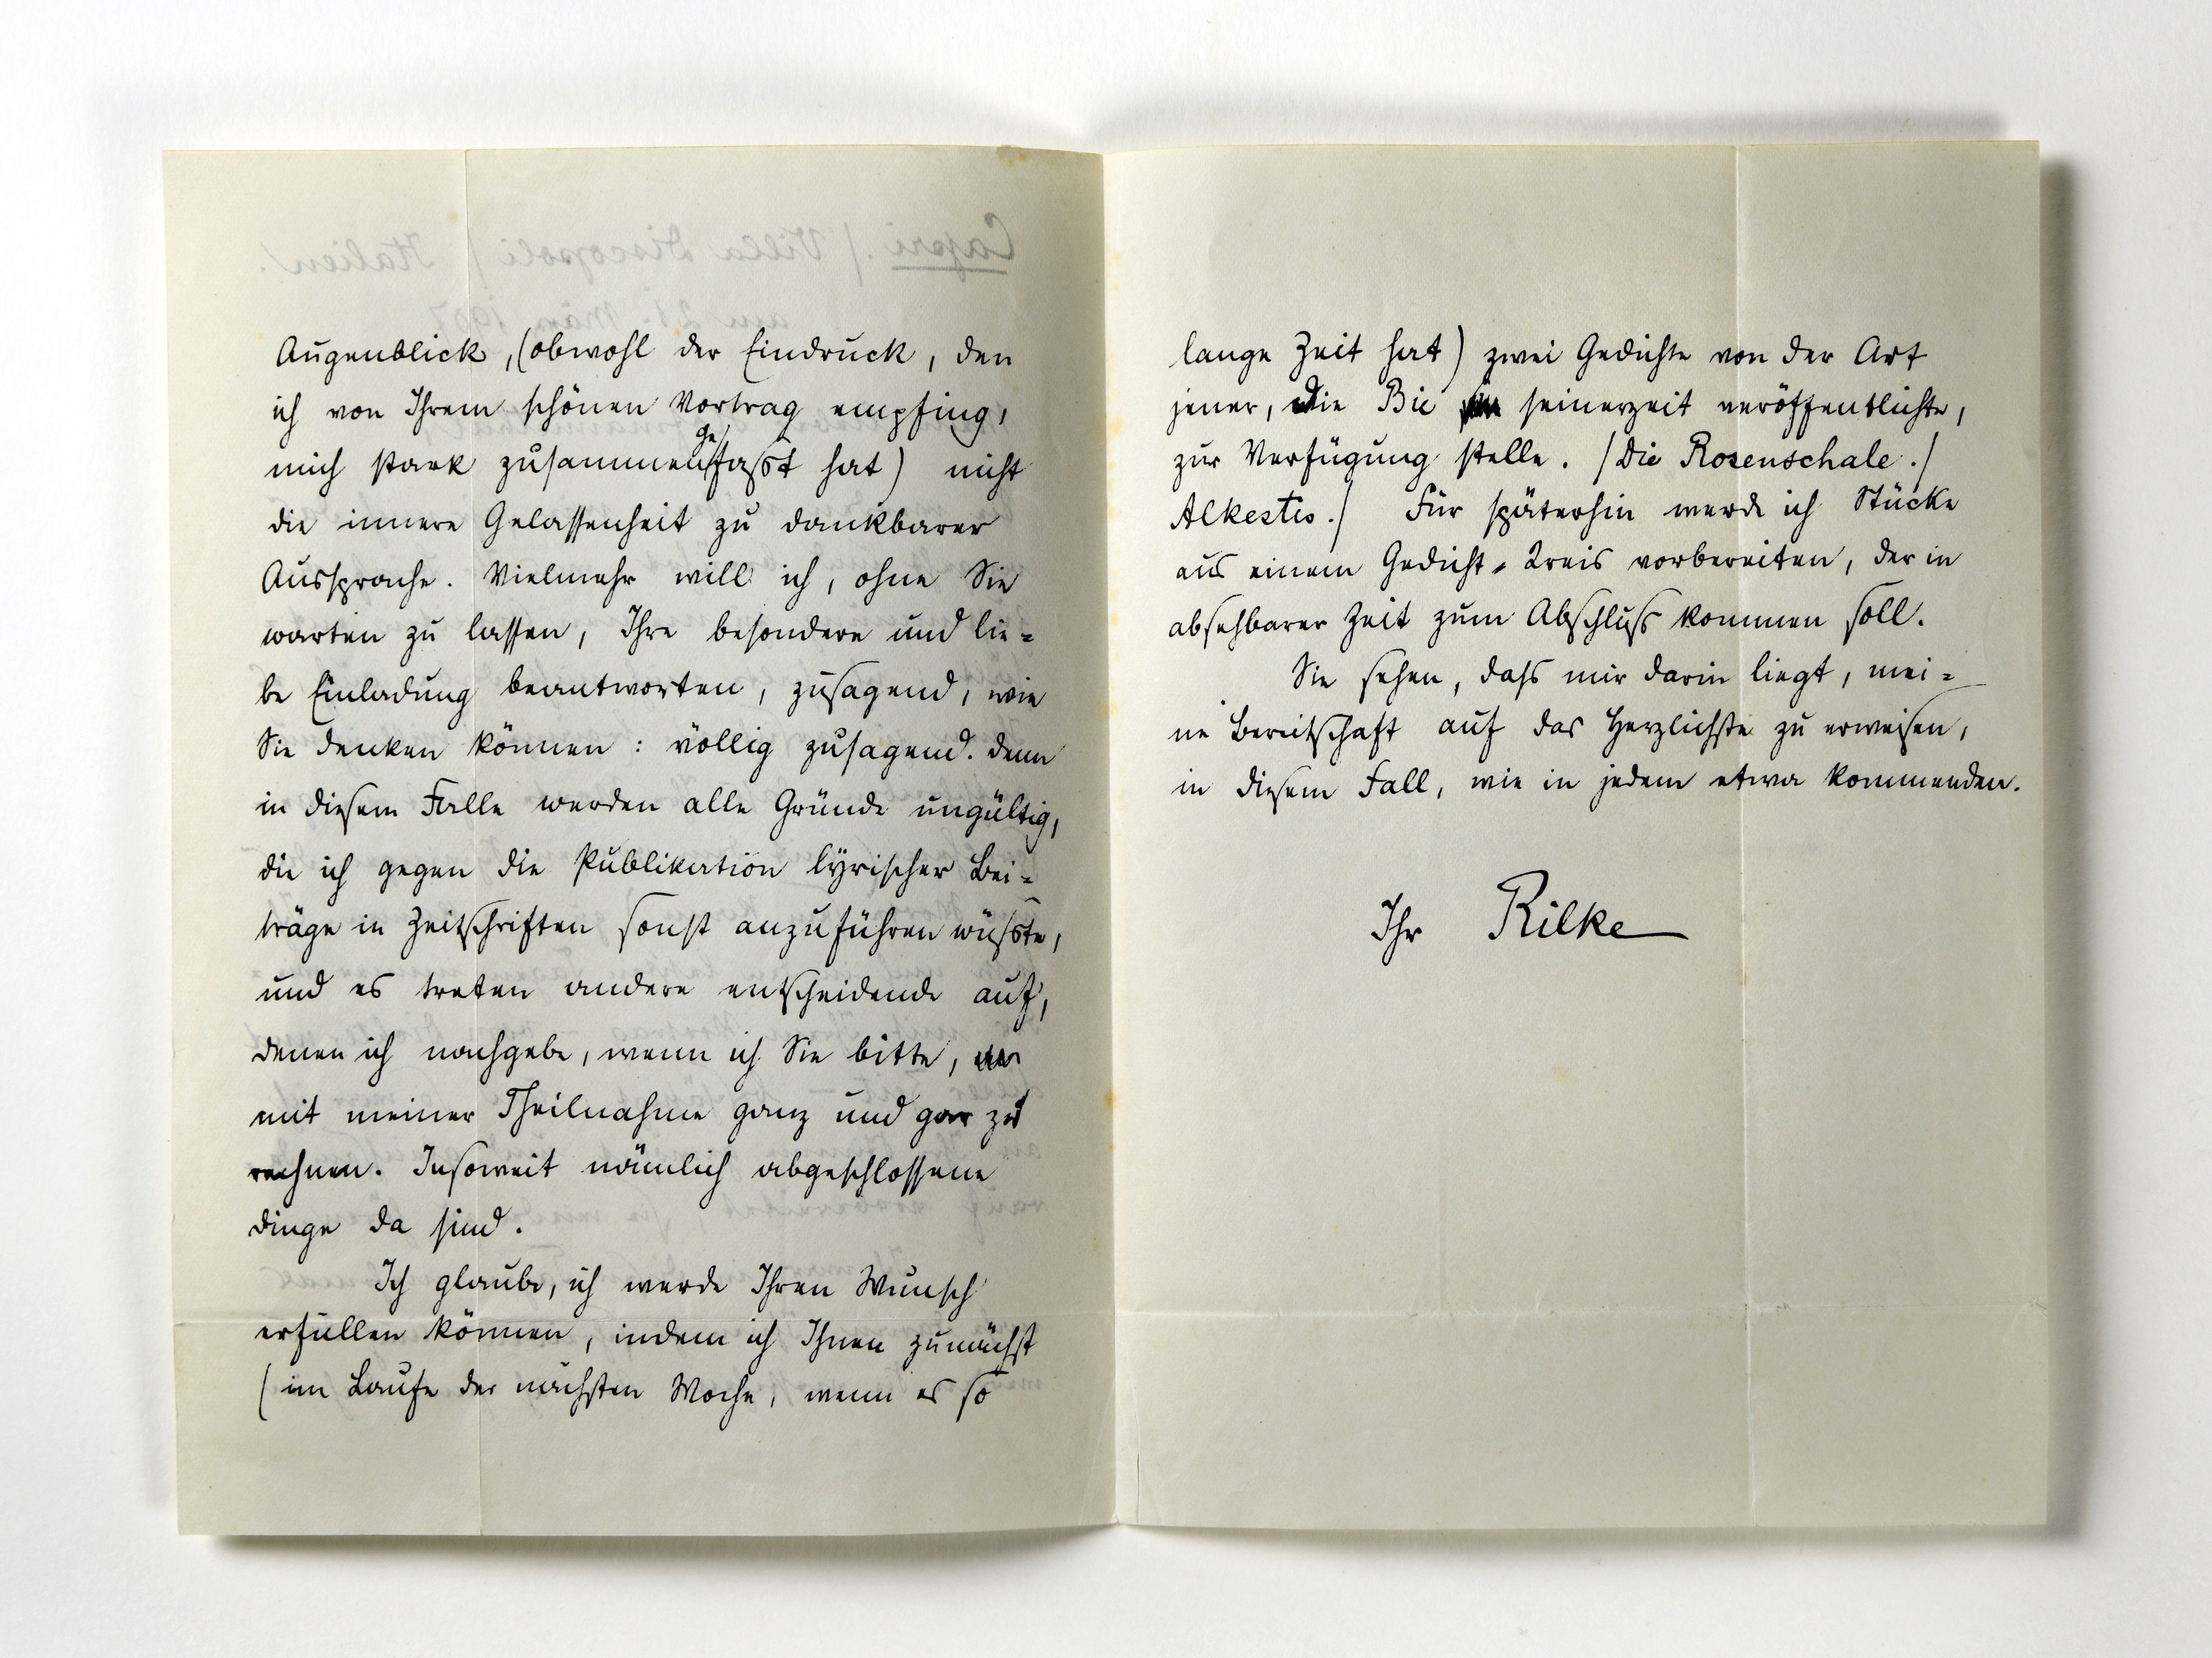 Capri. / Villa Discopoli / Italien.
am 21. März 1907
Augenblick, (obwohl der Eindruck, den
ich von Ihrem schönen Vortrag empfing,
mich stark zusammengefasst hat) nicht
die innere Gelassenheit zu dankbarer
Aussprache. Vielmehr will ich, ohne Sie
warten zu lassen, Ihre besondere und lie=
be Einladung beantworten, zusagend, wie
Sie denken können: völlig zusagend. Denn
in diesem Falle werden alle Gründe ungültig,
die ich gegen die Publikation lyrischer Bei=
träge in Zeitschriften sonst anzuführen wüsste,
und es treten andere entscheidende auf,
denen ich nachgebe, wenn ich Sie bitte,
mit meiner Theilnahme ganz und gar zu
rechnen. Insoweit nämlich abgeschlossene
Dinge da sind.
Ich glaube, ich werde Ihren Wunsch
erfüllen können, indem ich Ihnen zunächst
(im Laufe der nächsten Woche, wenn es so
lange Zeit hat) zwei Gedichte von der Art
jener, die Bie seinerzeit veröffentlichte,
zur Verfügung stelle. / Die Rosenschale. /
Alkestis. / Für späterhin werde ich Stücke
aus einem Gedicht=Kreis vorbereiten, der in
absehbarer Zeit zum Abschluss kommen soll.
Sie sehen, dass mir darin liegt, mei=
ne Bereitschaft auf das Herzlichste zu erweisen,
in diesem Fall, wie in jedem etwa kommenden.
Ihr Rilke